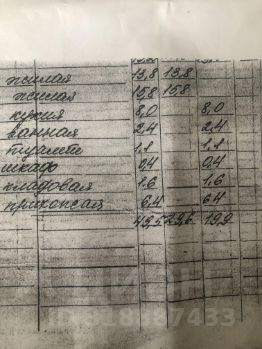 жилая 13,8 13,8
жилая 15,8 15,8
кухня 8,0 8,0
ванная 2,4 2,4
туалет 1,1 1,1
шкаф 0,4 0,4
кладовая 1,6 1,6
прихожая 6,4 6,4
49,5 29,6 19,9